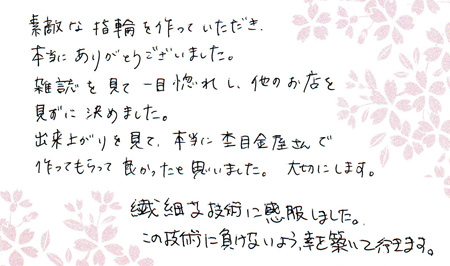 素敵な指輪を作っていただき、
本当にありがとうございました。
雑誌を見て一目惚れし、他のお店を
見ずに決めました。
出来上がりを見て、本当に杢目金屋さんで
作ってもらって良かったと思いました。大切にします。
繊細な技術に感服しました。
この技術に負けないよう、幸を築いて行きます。